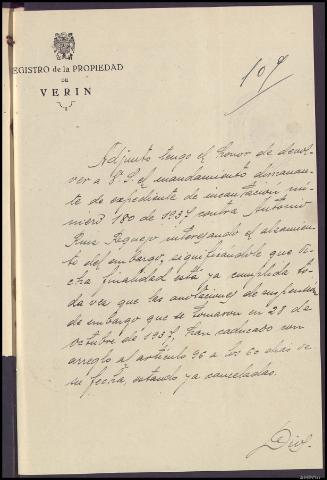 REGISTRO de la PROPIEDAD
DE
VERIN
109
Adjunto tengo el honor de devol-
ver a S.S. el mandamiento dimanan-
te de expediente de incautación nú-
mero 180 de 1937 contra Antonio
interesando el alzamien-
to del embargo, significándole que di-
cha finalidad está ya cumplida to-
da vez que las anotaciones de suspensión
de embargo que se tomaron en 28 de
octubre de 1937, han caducado con
arreglo al artículo 96 a los 60 días de
su fecha, estando ya canceladas.
Dios.